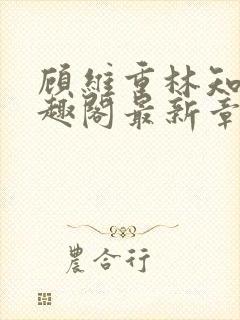 顾维重林知
趣阁最新章
農合行